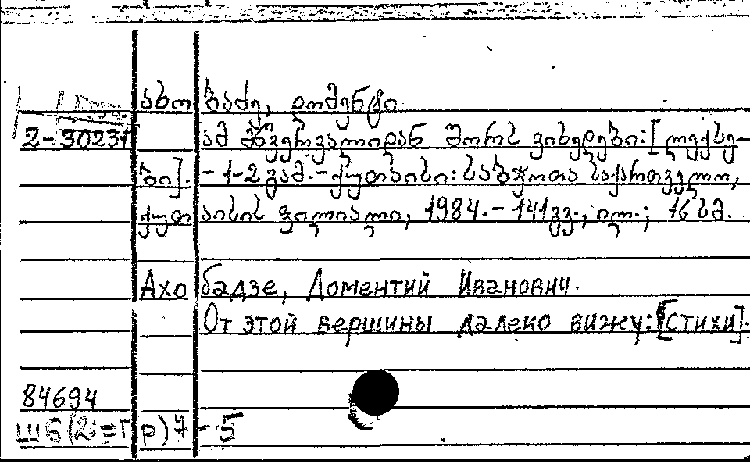 ახობაძე, დომენტი.
2-30231 ამ მწვერვალიდან შორს ვიხედები: [ლექსე-
ბი]. - 1-2 გამ. - ქუთაისი: საბჭოთა საქართველო,
ქუთაისის ფილიალი, 1984. - 141 გვ., ილ.; 16 სმ.
Ахобадзе, Доментий Иванович.
От этой вершины далеко вижу: [Стихи].
84694
Ш6(2=Гр)7-5